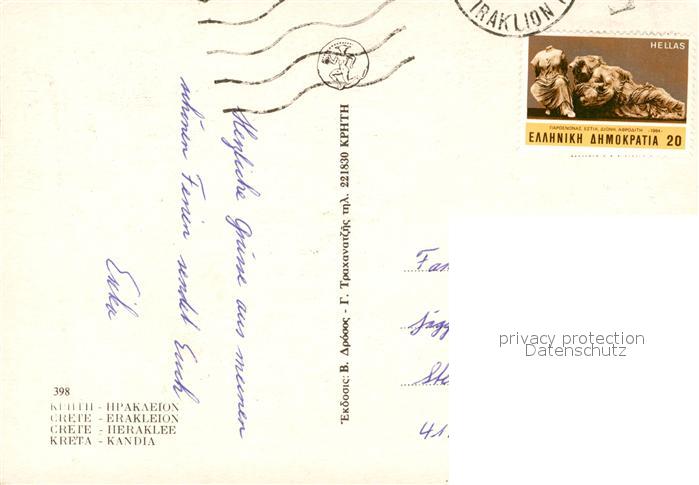 IRAKLION
HELLAS
ΠΑΡΘΕΝΩΝΑΣ, ΕΣΤΙΑ, ΔΙΩΝΗ, ΑΦΡΟΔΙΤΗ -1984-
ΕΛΛΗΝΙΚΗ ΔΗΜΟΚΡΑΤΙΑ 20
Herzliche Grüsse aus meinen
schönen Ferien sendet Euch
Erika
Ἔκδοσις: Β. Δρόσος - Γ. Τραχανατζῆς τηλ. 221830 ΚΡΗΤΗ
Fam
Jägg
Ste
41
398
ΚΡΗΤΗ - ΗΡΑΚΛΕΙΟΝ
CRETE - ERAKLEION
CRETE - HERAKLEE
KRETA - KANDIA
privacy protection
Datenschutz